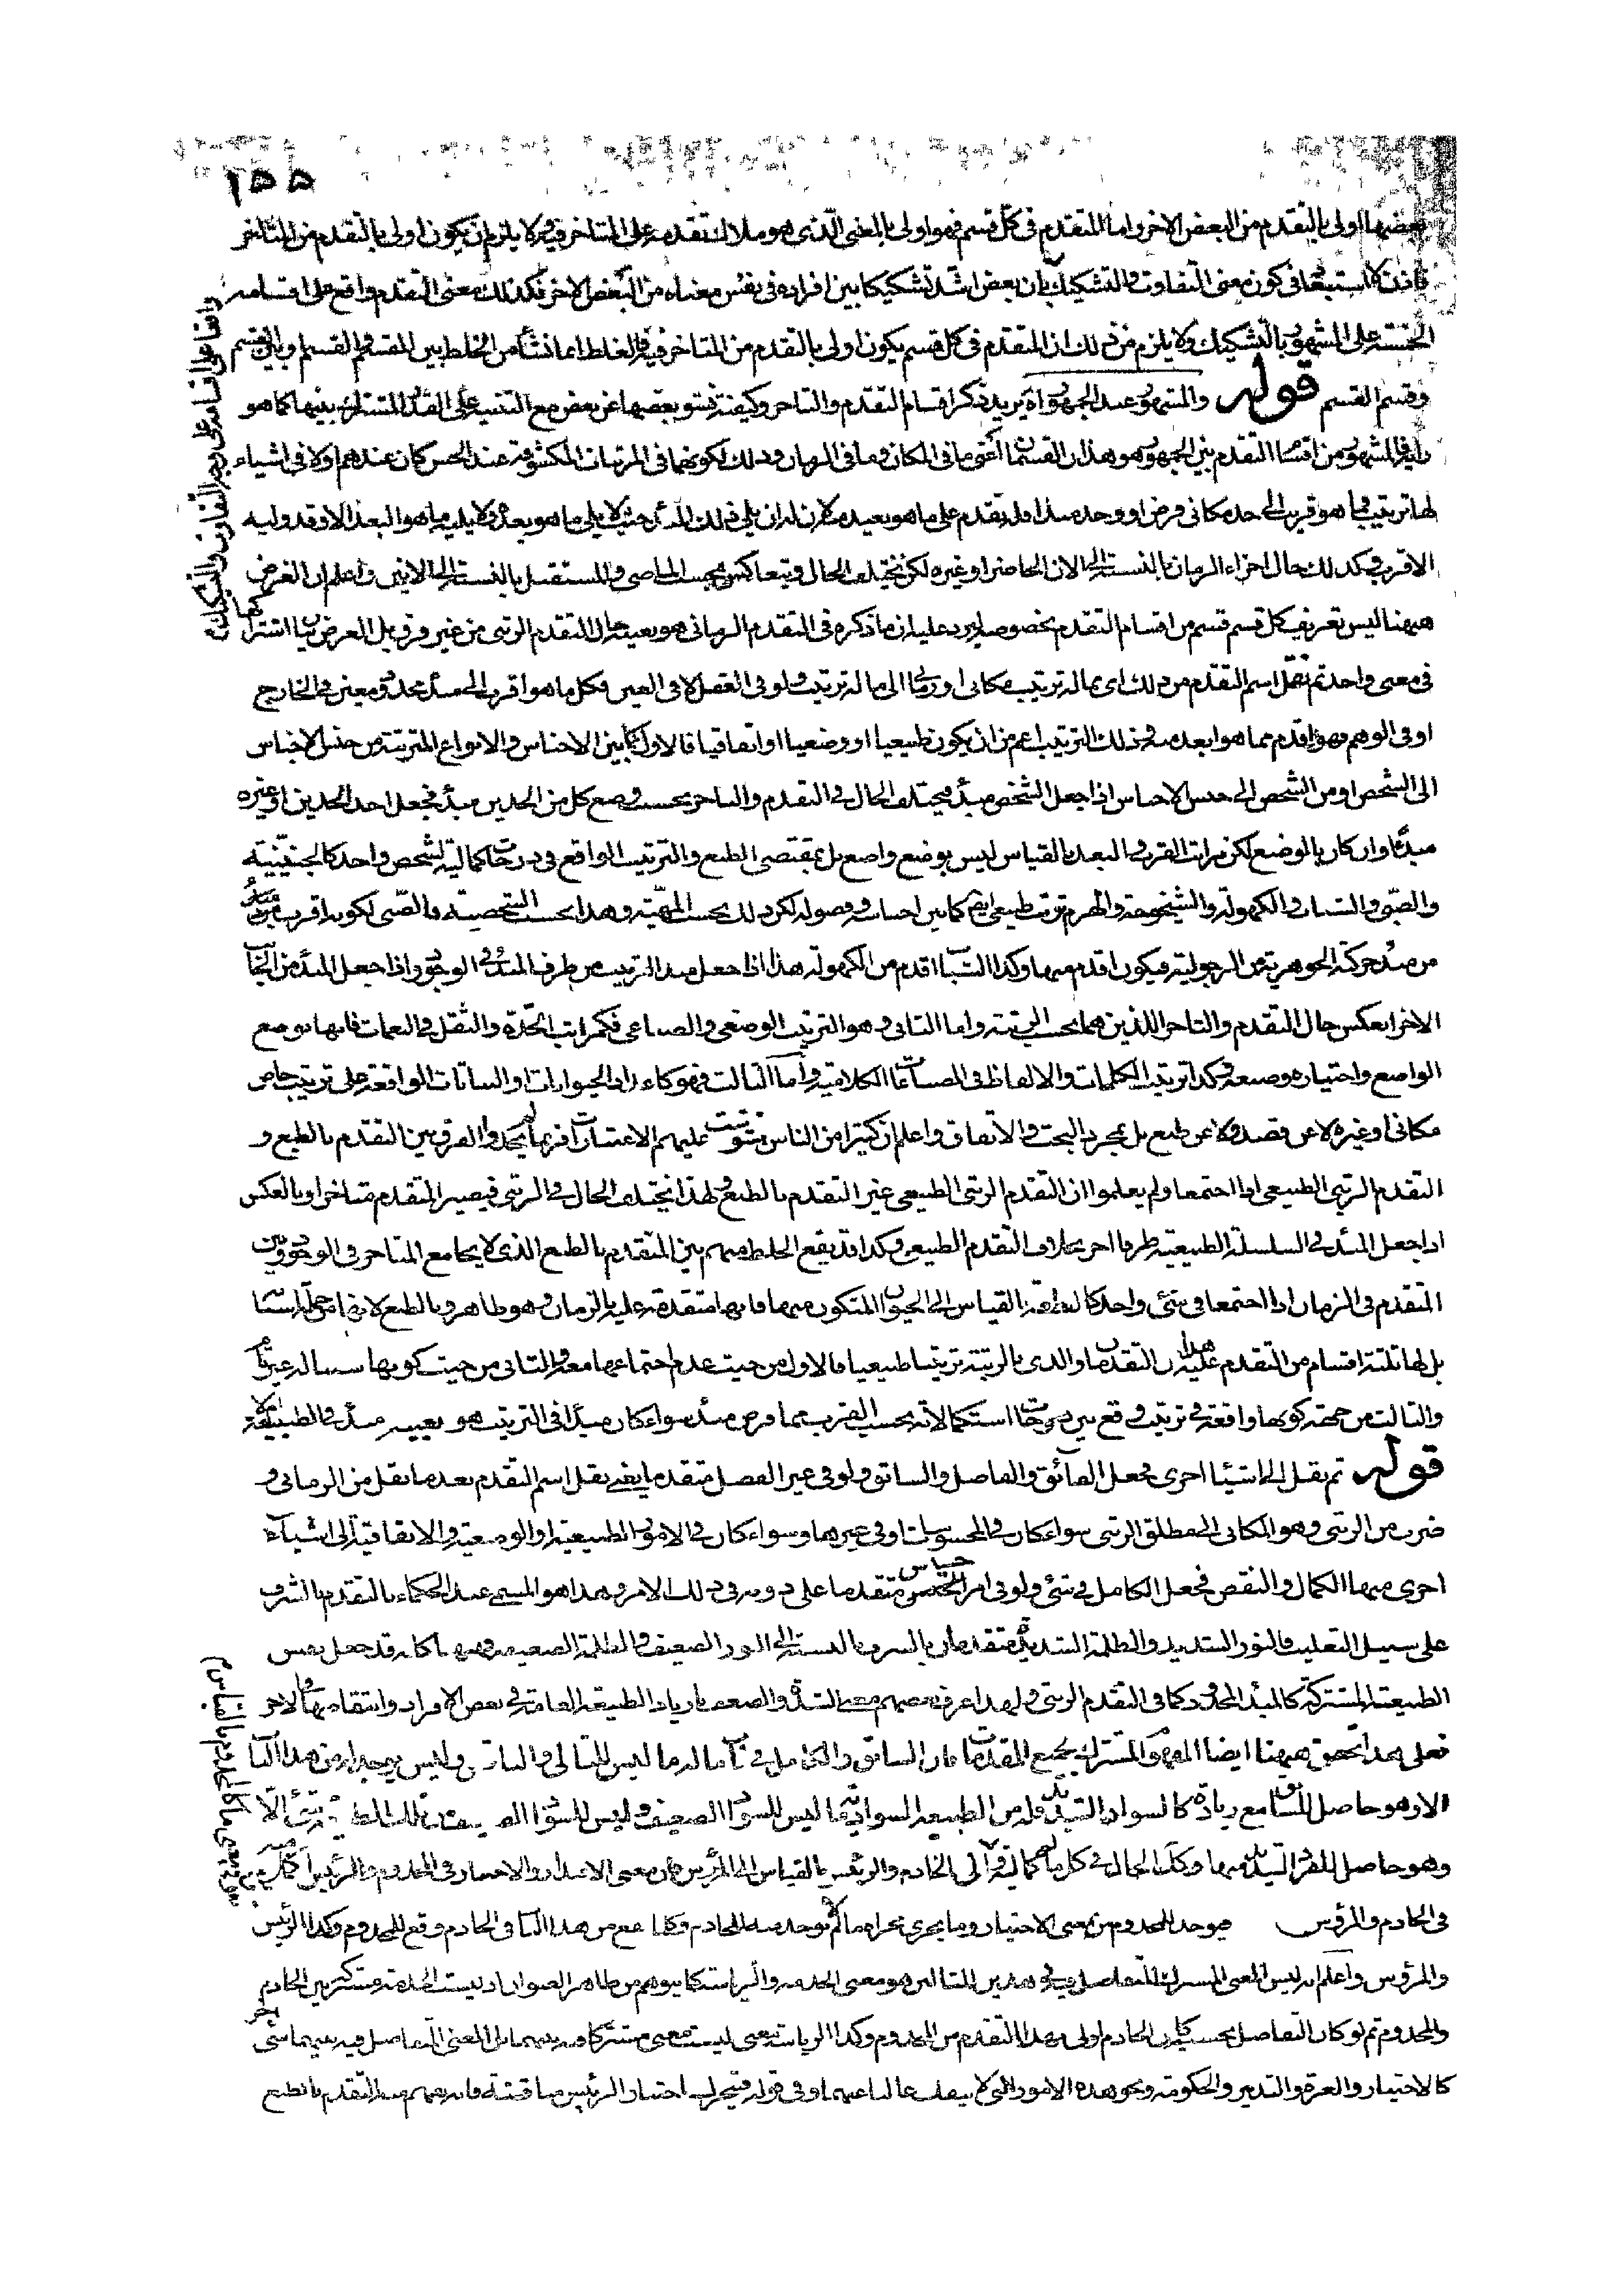 ١٥٥
بعضها اولى بالتقدم من البعض الاخر واما المتقدم في كل قسم فهو اولى بالمعنى الذي هو ملاك تقدمه على المتاخر فيه ولا يلزم ان يكون اولى بالتقدم من المتاخر
فاذن لا استبعاد في كون معنى التفاوت والتشكيك بان بعض اشد تشكيكا بين افراده في نفس معناه من البعض الاخر فكذلك معنى التقدم واقع على اقسامه
الخمسة على المشهور بالتشكيك ولا يلزم من ذلك ان المتقدم في كل قسم يكون اولى بالتقدم من المتاخر فيه والغلط انما نشأ من الخلط بين المقسم والقسم او بين القسم
وقسم القسم قوله والمشهور عند الجمهور اه يريد ذكر اقسام التقدم والتاخر وكيفية نشو بعضها عن بعض مع التنبيه على القدر المشترك بينها كما هو
رايه والمشهور من اقسام التقدم بين الجمهور هو هذان القسمان اعني ما في المكان وما في الزمان وذلك لكونهما في المرتبات المكشوفة عند الحس كان عندهم اولا في اشياء
لها ترتيب فما هو قريب الى حد مكاني فرض او وجد مبدا فله تقدم على ما هو بعيد منه لان له ان يلي ذلك المبدأ حيث لا يلي ما هو بعد ولا يليه ما هو البعد الا وقد وليه
الاقرب وكذلك حال اجزاء الزمان بالنسبة الى الان الحاضر او غيره لكن يختلف الحال ويتعاكس بحسب الماضي والمستقبل بالنسبة الى الانين واعلم ان الغرض
ههنا ليس تعريف كل قسم قسم من اقسام التقدم بخصوصه ليرد عليه ان ما ذكره في التقدم الزماني هو بعينه حال التقدم الرتبي من غير فرق بل الغرض بيان اشتراكها
في معنى واحد ثم نقل اسم التقدم من ذلك اي مما له ترتيب مكاني او زماني الى ما له ترتيب ولو في العقل لا في العين فكل ما هو اقرب الى مبدء محدود معين في الخارج
او في الوهم فهو اقدم مما هو ابعد منه وذلك الترتيب اعم من ان يكون طبيعيا او وضعيا او اتفاقيا فالاول كما بين الاجناس والانواع المترتبة من جنس الاجناس
الى الشخص او من الشخص الى جنس الاجناس اذا جعل الشخص مبدء فيختلف الحال في التقدم والتاخر بحسب وضع كل من الحدين مبدء فجعل احد الحدين او غيره
مبدءا وان كان بالوضع لكن مراتب القرب والبعد بالقياس ليس بوضع واضع بل بمقتضى الطبع والترتيب الواقع في درجات كمالية لشخص واحد كالجنينية
والصبى والشباب والكهولة والشيخوخة والهرم ترتيب طبيعي ايضا كما بين اجناسه وفصوله لكن ذلك بحسب المهية وهذا بحسب الشخصية فالصبى لكونه اقرب مرتبة
من مبدء حركة الجوهرية من الرجولية فيكون اقدم منها وكذا الشباب اقدم من الكهولة هذا اذا جعل مبدا الترتيب من طرف المبدء في الوجود واذا جعل المبدء من الجانب
الاخر انعكس حال التقدم والتاخر اللذين هما بحسب الرتبة واما الثاني وهو الترتيب الوضعي والصناعي فكمراتب الحدة والثقل في النغمات فانها بوضع
الواضع واختياره وصنعه وكذا ترتيب الكلمات والالفاظ في الصناعات الكلامية واما الثالث فهو كافراد الحيوانات او النباتات الواقعة على ترتيب خاص
مكاني او غيره لا عن قصد ولا عن طبع بل بمجرد البخت والاتفاق واعلم ان كثيرا من الناس يتشوش عليهم الاعتبارات فربما لم يجدوا الفرق بين التقدم بالطبع و
التقدم الرتبي الطبيعي اذا اجتمعا ولم يعلموا ان التقدم الرتبي الطبيعي غير التقدم بالطبع ولهذا يختلف الحال في الرتبي فيصير المتقدم متاخرا وبالعكس
اذا جعل المبدء في السلسلة الطبيعية طرفا اخر بخلاف التقدم الطبيعي وكذا قد يقع الخلط منهم بين المتقدم بالطبع الذي لا يجامع المتاخر في الوجود وبين
المتقدم في الزمان اذا اجتمعا في شئ واحد كالنطفة بالقياس الى الحيوان المتكون منها فانها متقدمة عليه بالزمان وهو ظاهر وبالطبع لانها من جملة اسبابه
بل لها ثلثة اقسام من التقدم عليه هذان التقدمان والذي بالرتبة ترتيبا طبيعيا فالاول من حيث عدم اجتماعها معه والثاني من حيث كونها سببا له غير تام
والثالث من جهة كونها واقعة في ترتيب وقع بين درجات استكمالاته بحسب القرب مما فرض مبدء سواء كان مبدأ في الترتيب هو بعينه مبدء في الطبيعة ام لا
قوله ثم نقل الى اشياء اخرى فجعل الفائق والفاضل والسابق ولو في غير الفضل متقدما يعني نقل اسم التقدم بعد ما نقل من الزماني و
ضرب من الرتبي وهو المكاني الى مطلق الرتبي سواء كان في المحسوسات او في غيرها وسواء كان في الامور الطبيعية او الوضعية والاتفاقية الى اشياء
اخرى منها الكمال والنقص فجعل الكامل في شئ ولو في امر خسيس متقدما على دونه في ذلك الامر وهذا هو المسمى عند الحكماء بالتقدم بالشرف
على سبيل التغليب فالنور الشديد والظلمة الشديدة متقدمان بالشرف بالنسبة الى النور الضعيف والظلمة الضعيفة وههنا كانه قد جعل نفس
الطبيعة المشتركة كالمبدء المحدود كما في التقدم الرتبي ولهذا عرف بعضهم معنى الشدة والضعف بازدياد الطبيعة العامة في بعض الافراد وانتقاصها في الاخر
فعلى هذا تحقق ههنا ايضا المفهوم المشترك بجميع المقدمات فان السابق والكامل في باب ما له ما ليس للتالي والناقص وليس يوجد له من هذا الباب
الا وهو حاصل للسابق مع زيادة كالسواد الشديد فله من الطبيعة السوادية ما ليس للسواد الضعيف وليس للسواد الضعيف من تلك شئ الا
وهو حاصل للفرد الشديد منها وكذلك الحال في كل ما هو كمالية
في الخادم والمرؤس فيوجد للمخدوم من معنى الاختيار وما يجري مجراه ما لا يوجد مثله للخادم وكلما يقع من هذا الباب في الخادم وقع للمخدوم وكذا الرئيس
والمرؤس واعلم انه ليس المعنى المشترك المتفاضل فيه في هذين المثالين هو معنى الخدمة والرياسة كما يتوهم من ظاهر العنوان اذ ليست الخدمة مشتركة بين الخادم
والمخدوم ثم لو كان التفاضل بحسبه كان الخادم اولى بهذا التقدم من المخدوم وكذا الرياسة ليست معنى مشتركا فيه بينهما بل المعنى التفاضل فيه بينهما شئ اخر
كالاختيار والعزة والتدبير والحكومة ونحو هذه الامور